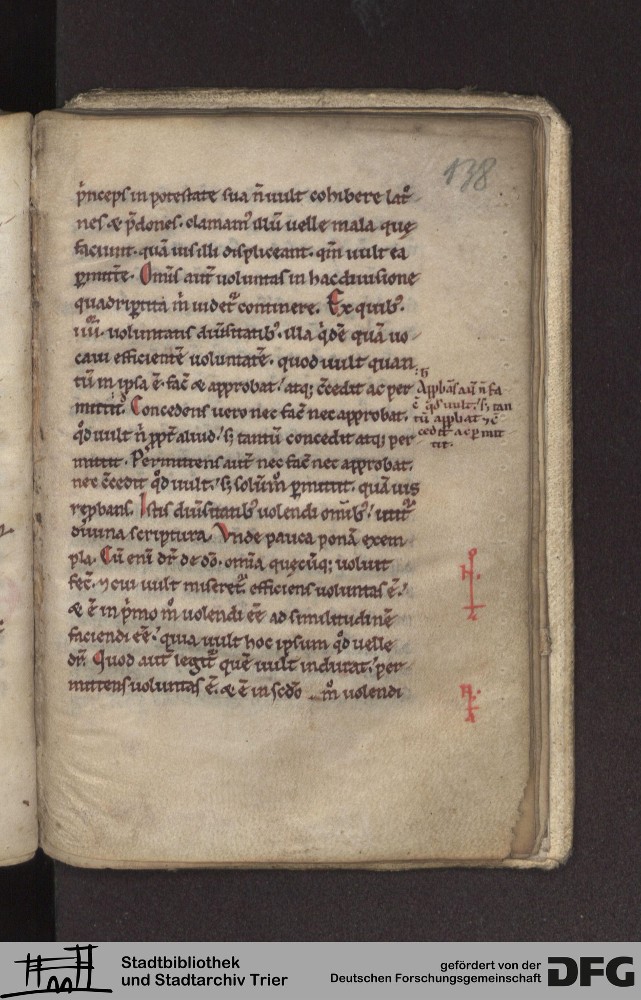 138
p̓nceps in potestate sua n̄ uult cohibere lat̓o
nes & p̄dones. clamam᷒ illū uelle mala quę
faciunt. quāuis illi displiceant. qm̄ uult ea
ꝑmitte᷑. Om̄is aut̄ uoluntas in hac diuisione
quadriꝑtita m̄ uidet᷑ continere. Ex quib᷒.
iiii. uoluntatis diūsitatib᷒. illa q̓dē quā uo
caui efficientē uoluntatē. quod uult quan
tū in ipsa ē. fac̄ & approbat. atq; c̄cedit ac per
mittit. Concedens uero nec fac̄ nec approbat.
qd̄ uult n̄ ꝓpt̄ aliud. sꝫ tantū concedit atq; per
mittit. Permittens aut̄ nec fac̄ nec approbat.
nec c̄cedit qd̄ uult. sꝫ solūm̊ ꝑmittit. quāuis
repbans. Istis diūsitatib᷒ uolendi om̄ib᷒. utit᷑
diuina scriptura. Vnde pauca ponā exem
pla. Cū eni dr̄ de do̅. omīa quęcūq; uoluit
fec̄. ⁊ cui uult miseret᷑. efficiens uoluntas ē.
& ē in p̓mo m̊ uolendi eē ad similitudinē
faciendi eē. quia uult hoc ipsum qd̄ uelle
dr̄. Quod aut̄ legit᷑ quē uult indurat. per
mittens uoluntas ē. & ē in scd̄o m̊ uolendi
Apꝓbās aū n̄ fa
c̄ qd̄ uult. sꝫ tan
tū apꝓbat ⁊ c̄
cedit ac ꝑmit
tit.
Stadtbibliothek
und Stadtarchiv Trier
gefördert von der
Deutschen Forschungsgemeinschaft
DFG